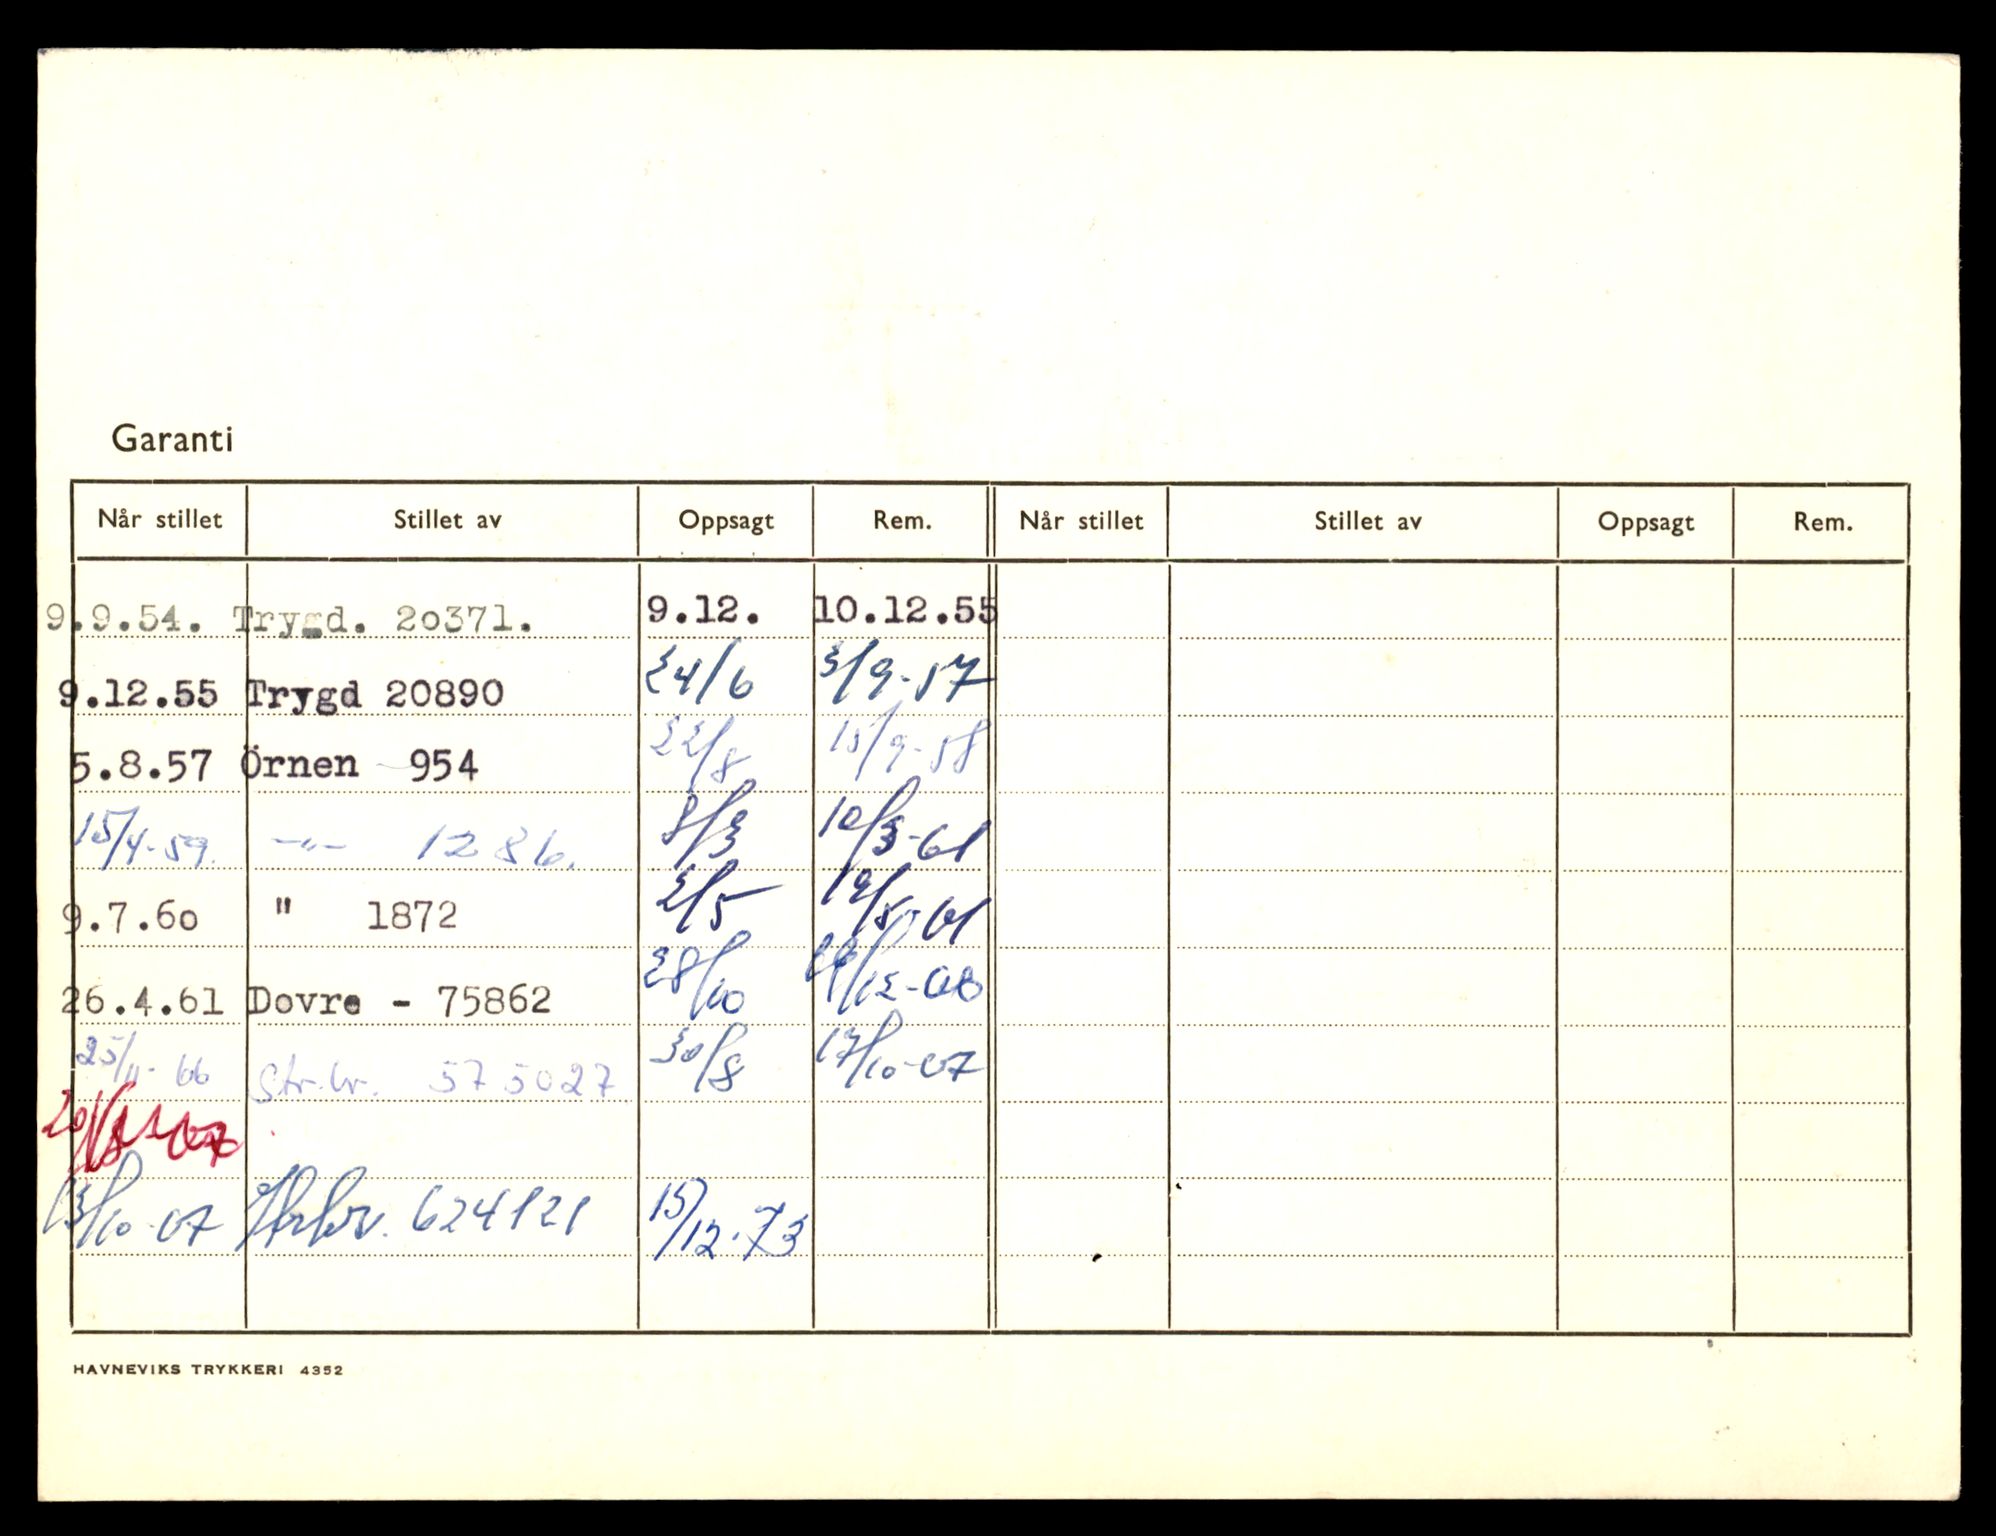 Garanti
Når stillet Stillet av Oppsagt Rem. Når stillet Stillet av Oppsagt Rem.
9.9.54. Trygd. 20371. 9.12. 10.12.55
9.12.55 Trygd 20890 24/6 3/9-57
5.8.57 Örnen 954 22/8 15/9-58
15/4-59. -"- 1286. 8/3 10/3-61
9.7.60 " 1872 2/5 19/5-61
26.4.61 Dovre - 75862 28/10 /12-68
25/11-66 Str.br. 575027 30/8 17/10-67
13/10-67 Str.br. 624121 15/12-73
HAVNEVIKS TRYKKERI 4352